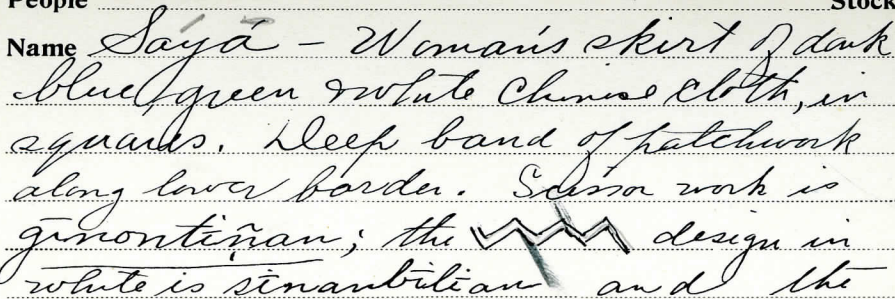 People Stock
Name Sayá - Woman's skirt of dark
blue, green & white Chinese cloth, in
squares. Deep band of patchwork
along lower border. Scissor work is
ginontiñan; the design in
white is sinanbilian and the